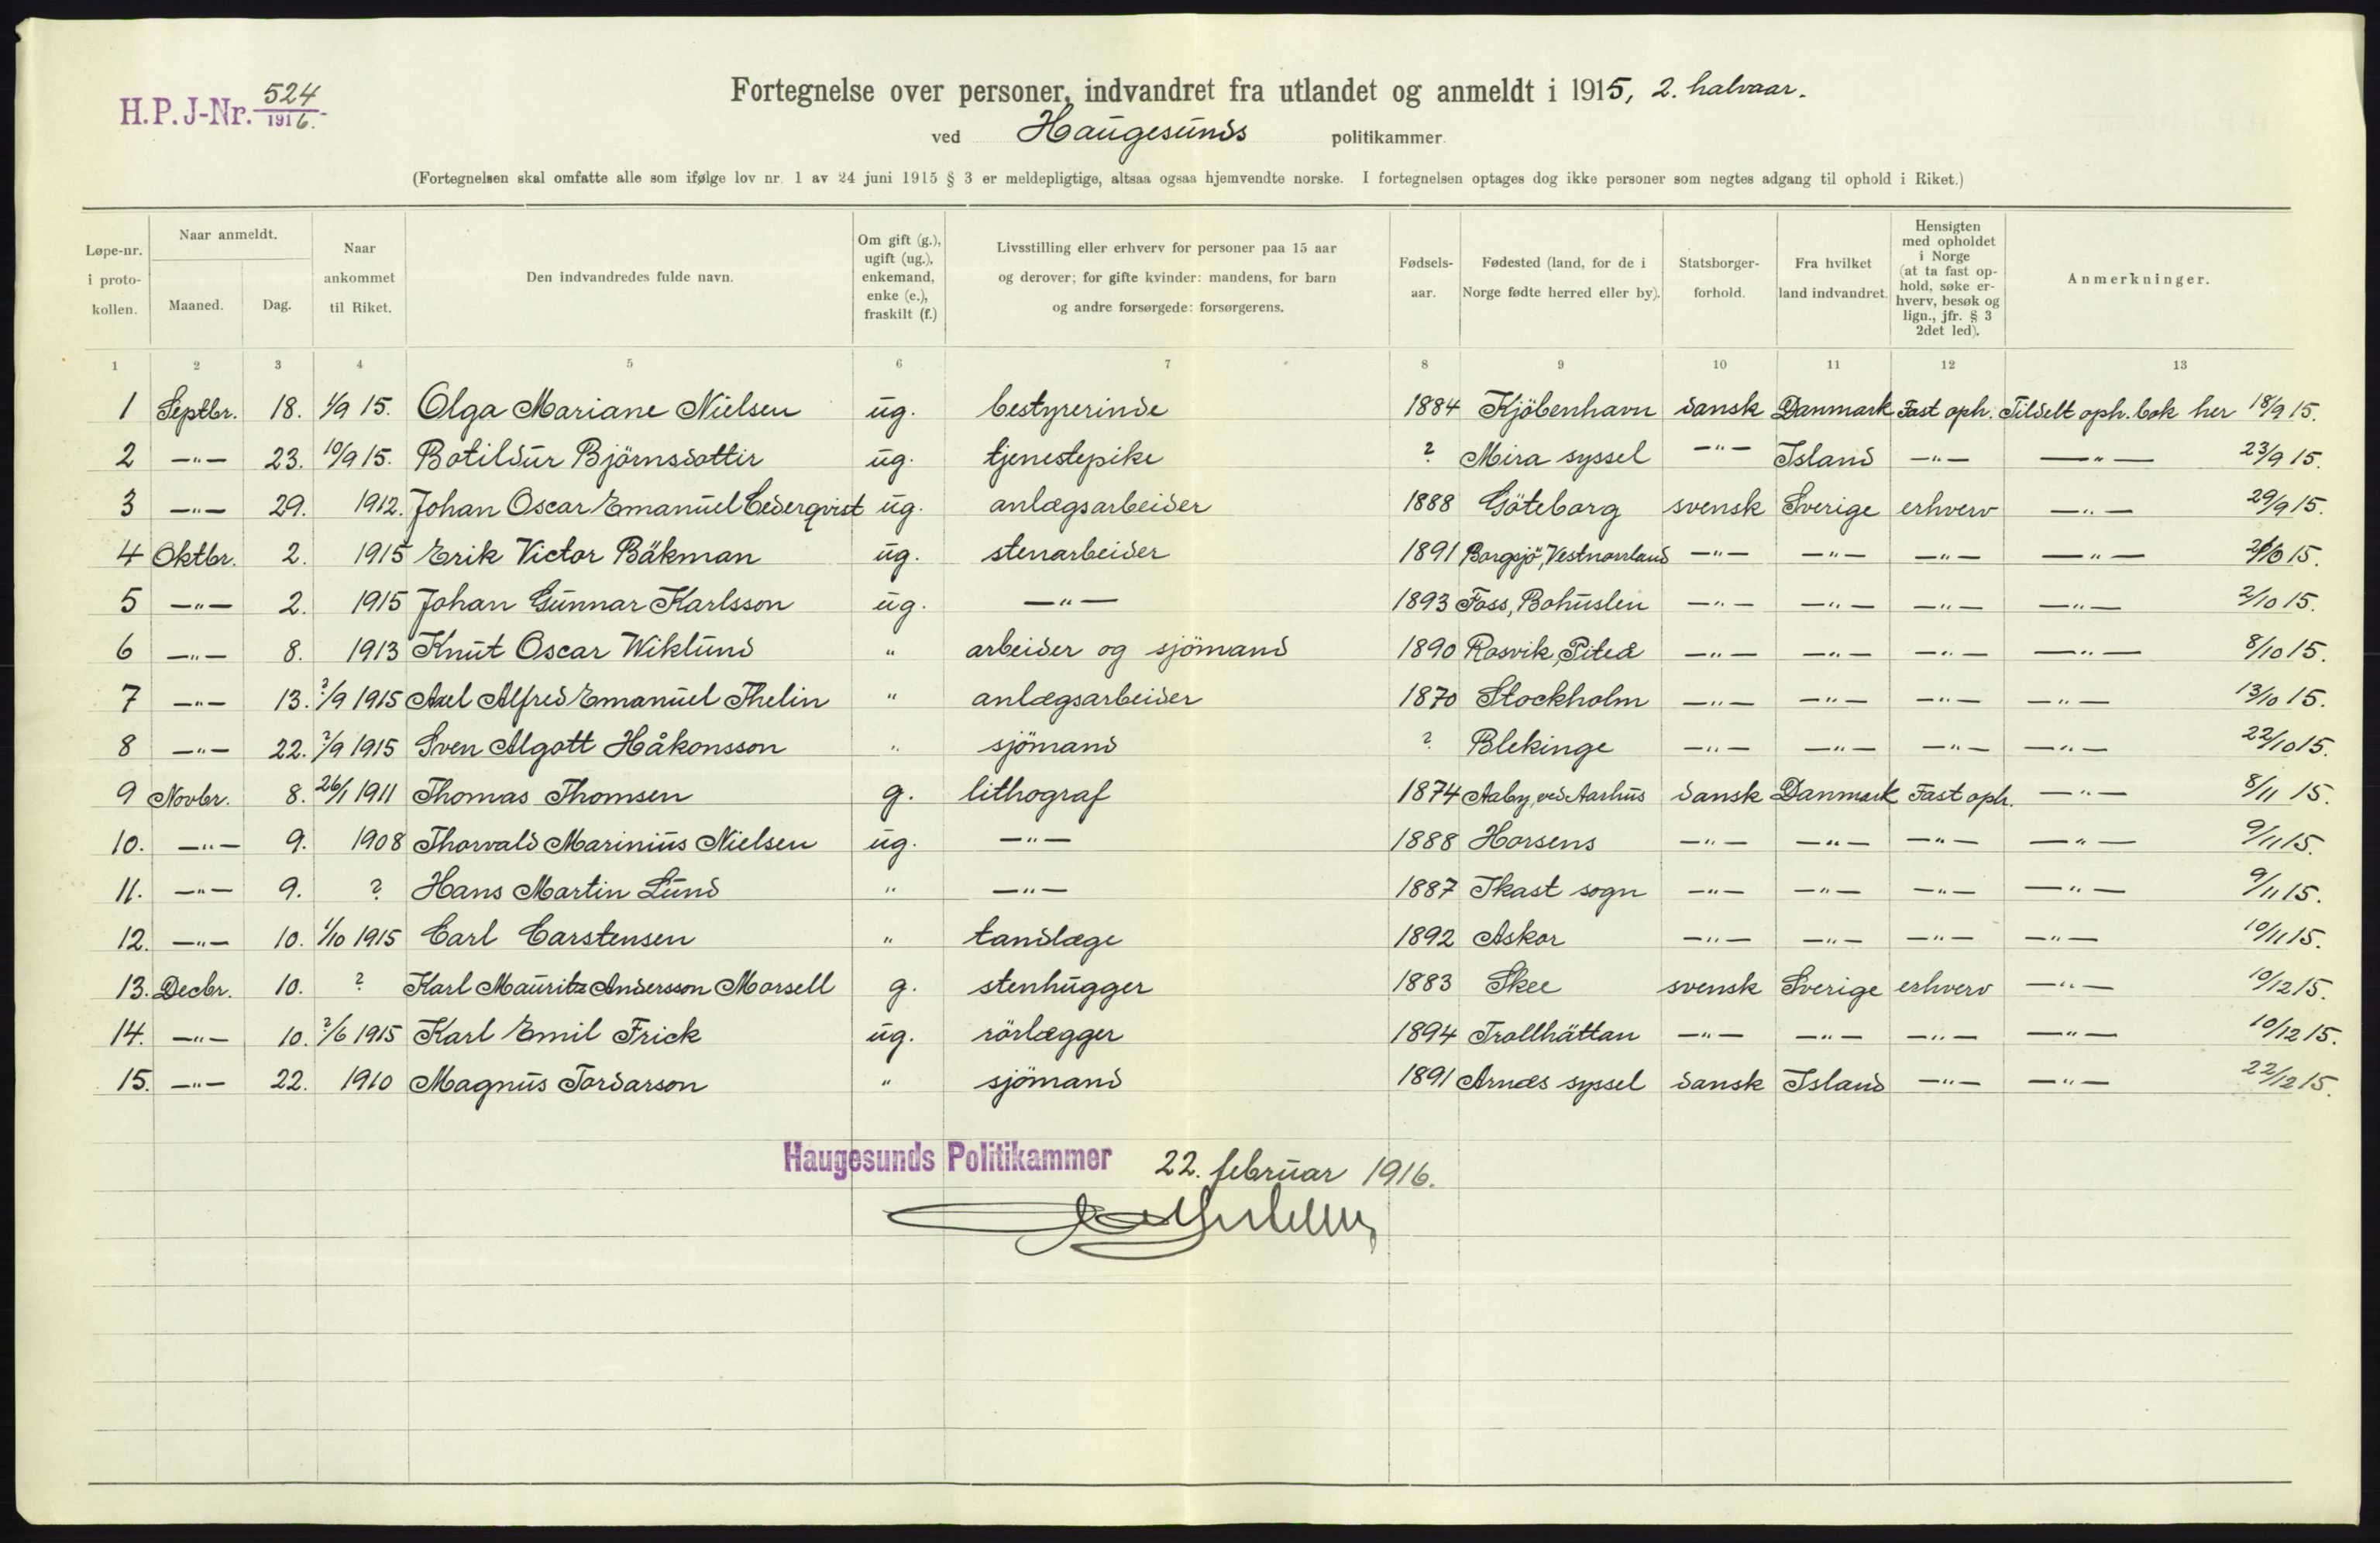 H.P.J-Nr. 524/1916.
Fortegnelse over personer, indvandret fra utlandet og anmeldt i 1915, 2. halvaar.
ved Haugesunds politikammer.
(Fortegnelsen skal omfatte alle som ifølge lov nr. 1 av 24 juni 1915 § 3 er meldepligtige, altsaa ogsaa hjemvendte norske. I fortegnelsen optages dog ikke personer som negtes adgang til ophold i Riket.)
Løpe-nr. i proto-kollen.
Naar anmeldt.
Maaned.
Dag.
Naar ankommet til Riket.
Den indvandredes fulde navn.
Om gift (g.), ugift (ug.), enkemand, enke (e.), fraskilt (f.)
Livsstilling eller erhverv for personer paa 15 aar og derover; for gifte kvinder: mandens, for barn og andre forsørgede: forsørgerens.
Fødsels-aar.
Fødested (land, for de i Norge fødte herred eller by).
Statsborger-forhold.
Fra hvilket land indvandret.
Hensigten med opholdet i Norge (at ta fast op-hold, søke er-hverv, besøk og lign., jfr. § 3 2det led).
Anmerkninger.
1 2 3 4 5 6 7 8 9 10 11 12 13
1 Septbr. 18. 1/9 15. Olga Mariane Nielsen ug. bestyrerinde 1884 Kjöbenhavn dansk Danmark Fast oph. Tildelt oph. bok her 18/9 15.
2 —"— 23. 10/9 15. Botildur Björnsdottir ug. tjenestepike ? Mira syssel —"— Island —"— —"— 23/9 15.
3 —"— 29. 1912. Johan Oscar Emanuel Cederqvist ug. anlægsarbeider 1888 Göteborg svensk Sverige erhverv —"— 29/9 15.
4 Oktbr. 2. 1915 Erik Victor Bäkman ug. stenarbeider 1891 Borgsjö, Vestnorrland —"— —"— —"— —"— 2/10 15.
5 —"— 2. 1915 Johan Gunnar Karlsson ug. —"— 1893 Foss, Bohuslen —"— —"— —"— —"— 2/10 15.
6 —"— 8. 1913 Knut Oscar Wiklund " arbeider og sjömand 1890 Rosvik, Piteå —"— —"— —"— —"— 8/10 15.
7 —"— 13. ?/9 1915 Axel Alfred Emanuel Thelin " anlægsarbeider 1870 Stockholm —"— —"— —"— —"— 13/10 15.
8 —"— 22. ?/9 1915 Sven Algott Håkonsson " sjömand ? Blekinge —"— —"— —"— —"— 22/10 15.
9 Novbr. 8. 26/1 1911 Thomas Thomsen g. lithograf 1874 Aaby, ved Aarhus dansk Danmark Fast oph. —"— 8/11 15.
10. —"— 9. 1908 Thorvald Marinius Nielsen ug. —"— 1888 Horsens —"— —"— —"— —"— 9/11 15.
11. —"— 9. ? Hans Martin Lund " —"— 1887 Ikast sogn —"— —"— —"— —"— 9/11 15.
12. —"— 10. 1/10 1915 Carl Carstensen " tandlæge 1892 Askor —"— —"— —"— —"— 10/11 15.
13. Decbr. 10. ? Karl Mauritz Andersson Morsell g. stenhugger 1883 Skee svensk Sverige erhverv —"— 10/12 15.
14. —"— 10. ?/6 1915 Karl Emil Frick ug. rörlægger 1894 Trollhättan —"— —"— —"— —"— 10/12 15.
15. —"— 22. 1910 Magnus Tordarson " sjömand 1891 Arnæs syssel dansk Island —"— —"— 22/12 15.
Haugesunds Politikammer 22. februar 1916.